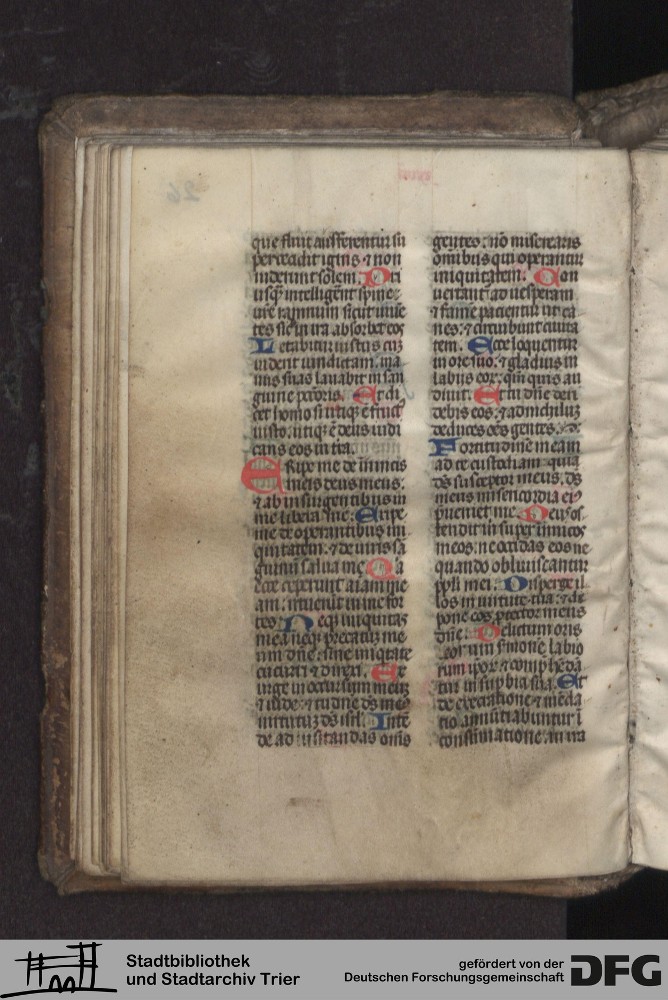 que fluit aufferentur su
per cecidit ignis & non
uiderunt solem. Pri
usq̄ intelligerēt spine
ur̄e ramnum sicut uiuē
tes sic in ira absorbet eos
Letabitur iustus cū
uiderit uindictam. ma
nus suas lauabit in san
guine pecōris. Et di
cet homo si utiq; ē fruct᷒
iusto. utiq; ē deus iudi
cans eos in tr̄a.
Eripe me de inimicis
meis deus meus.
& ab insurgentibus in
me libera me. Eripe
me de operantibus in
iquitatem. & de uiris sā
guinū salua me. Q̄a
ecce ceperunt aīam me
am. irruerūt in me for
tes. Neq; iniquitas
mea neq; peccatū me
um dn̄e. sine iniq̄tate
cucurri & direxi. Ex
urge in occursum meuz
& uide. & tu dn̄e ds̄
uirtutuz ds̄ isrl̄. Intē
de ad uisitandas om̄s
gentes. nō miserearis
om̄ibus qui operantur
iniquitatem. Con
uertant᷑ ad uesperam
& famē pacientur ut ca
nes. & circuibunt ciuita
tem. Ecce loquentur
in ore suo. & gladius in
labiis eor̄. qm̄ quis au
diuit. Et tu dn̄e deri
debis eos. & ad nichiluz
deduces oēs gentes.
Fortitudinē meam
ad te custodiam. quia
ds̄ susceptor meus. ds̄
meus misericordia ei᷒
pueniet me. Deus os
tendit m̄ super inimicos
meos. ne occidas eos ne
quando obliuiscantur
ppl̄i mei. Disperge il
los in uirtute tua. & de
pone eos ptector meus
dn̄e. Delictum oris
eor̄ um s̄monē labio
rum ip̄or̄. & comp̄hēdā
tur in sup̄bia sua. Et
de execratione & menda
cio annūtiabuntur ī
consumatione. in ira
26
Stadtbibliothek
und Stadtarchiv Trier
gefördert von der
Deutschen Forschungsgemeinschaft
DFG